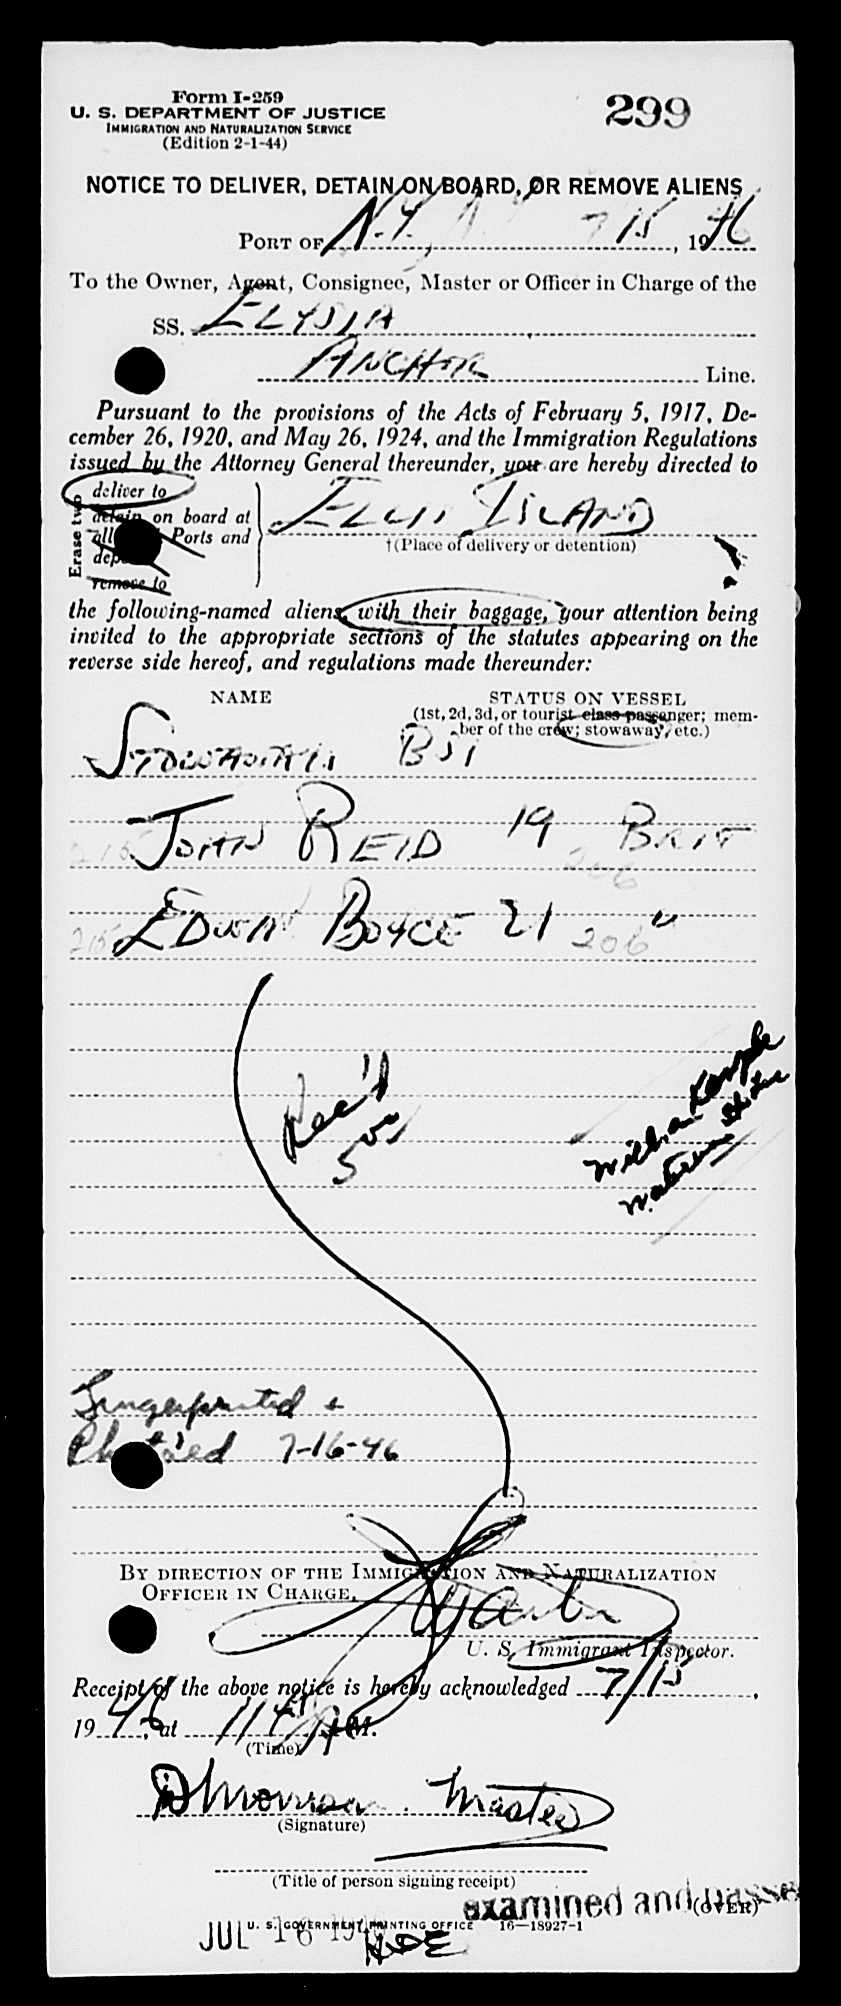 Form I-259
299
U. S. DEPARTMENT OF JUSTICE
IMMIGRATION AND NATURALIZATION SERVICE
(Edition 2-1-44)
NOTICE TO DELIVER, DETAIN ON BOARD, OR REMOVE ALIENS
PORT OF N.Y., 7/15, 1946
To the Owner, Agent, Consignee, Master or Officer in Charge of the
SS. ELYSIA
ANCHOR Line.
Pursuant to the provisions of the Acts of February 5, 1917, De-
cember 26, 1920, and May 26, 1924, and the Immigration Regulations
issued by the Attorney General thereunder, you are hereby directed to
Erase two
deliver to
detain on board at
all Ports and
remove to
ELLIS ISLAND
†(Place of delivery or detention)
the following-named aliens, with their baggage, your attention being
invited to the appropriate sections of the statutes appearing on the
reverse side hereof, and regulations made thereunder:
NAME STATUS ON VESSEL
(1st, 2d, 3d, or tourist class passenger; mem-
ber of the crew; stowaway, etc.)
STOWAWAYS BSI
215 JOHN REID 19 BRIT
206
215 EDWAR BOYCE 21 206 "
Rec'd
5 00
William
Fingerprinted &
Photo'ed 7-16-46
BY DIRECTION OF THE IMMIGRATION AND NATURALIZATION
OFFICER IN CHARGE,
U. S. Immigrant Inspector.
Receipt of the above notice is hereby acknowledged 7/15,
1946, at 11 45 AM.
(Time)
D Morrison. Master
(Signature)
(Title of person signing receipt)
examined and passe
(OVER)
U. S. GOVERNMENT PRINTING OFFICE 16—18927-1
JUL 16 194